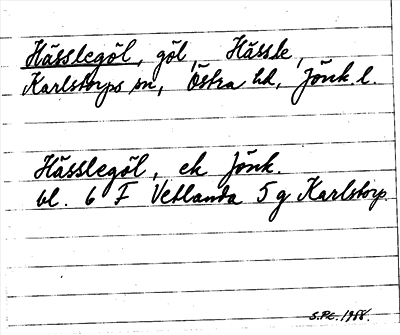 Hässlegöl, göl, Hässle,
Karlstorps sn, Östra hd, Jönk. l.
Hässlegöl, ek Jönk.
bl. 6 F Vetlanda 5 g Karlstorp.
1988.